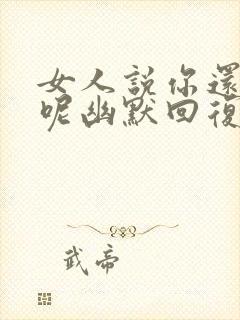 女人説你還
呢幽默回復
武帝